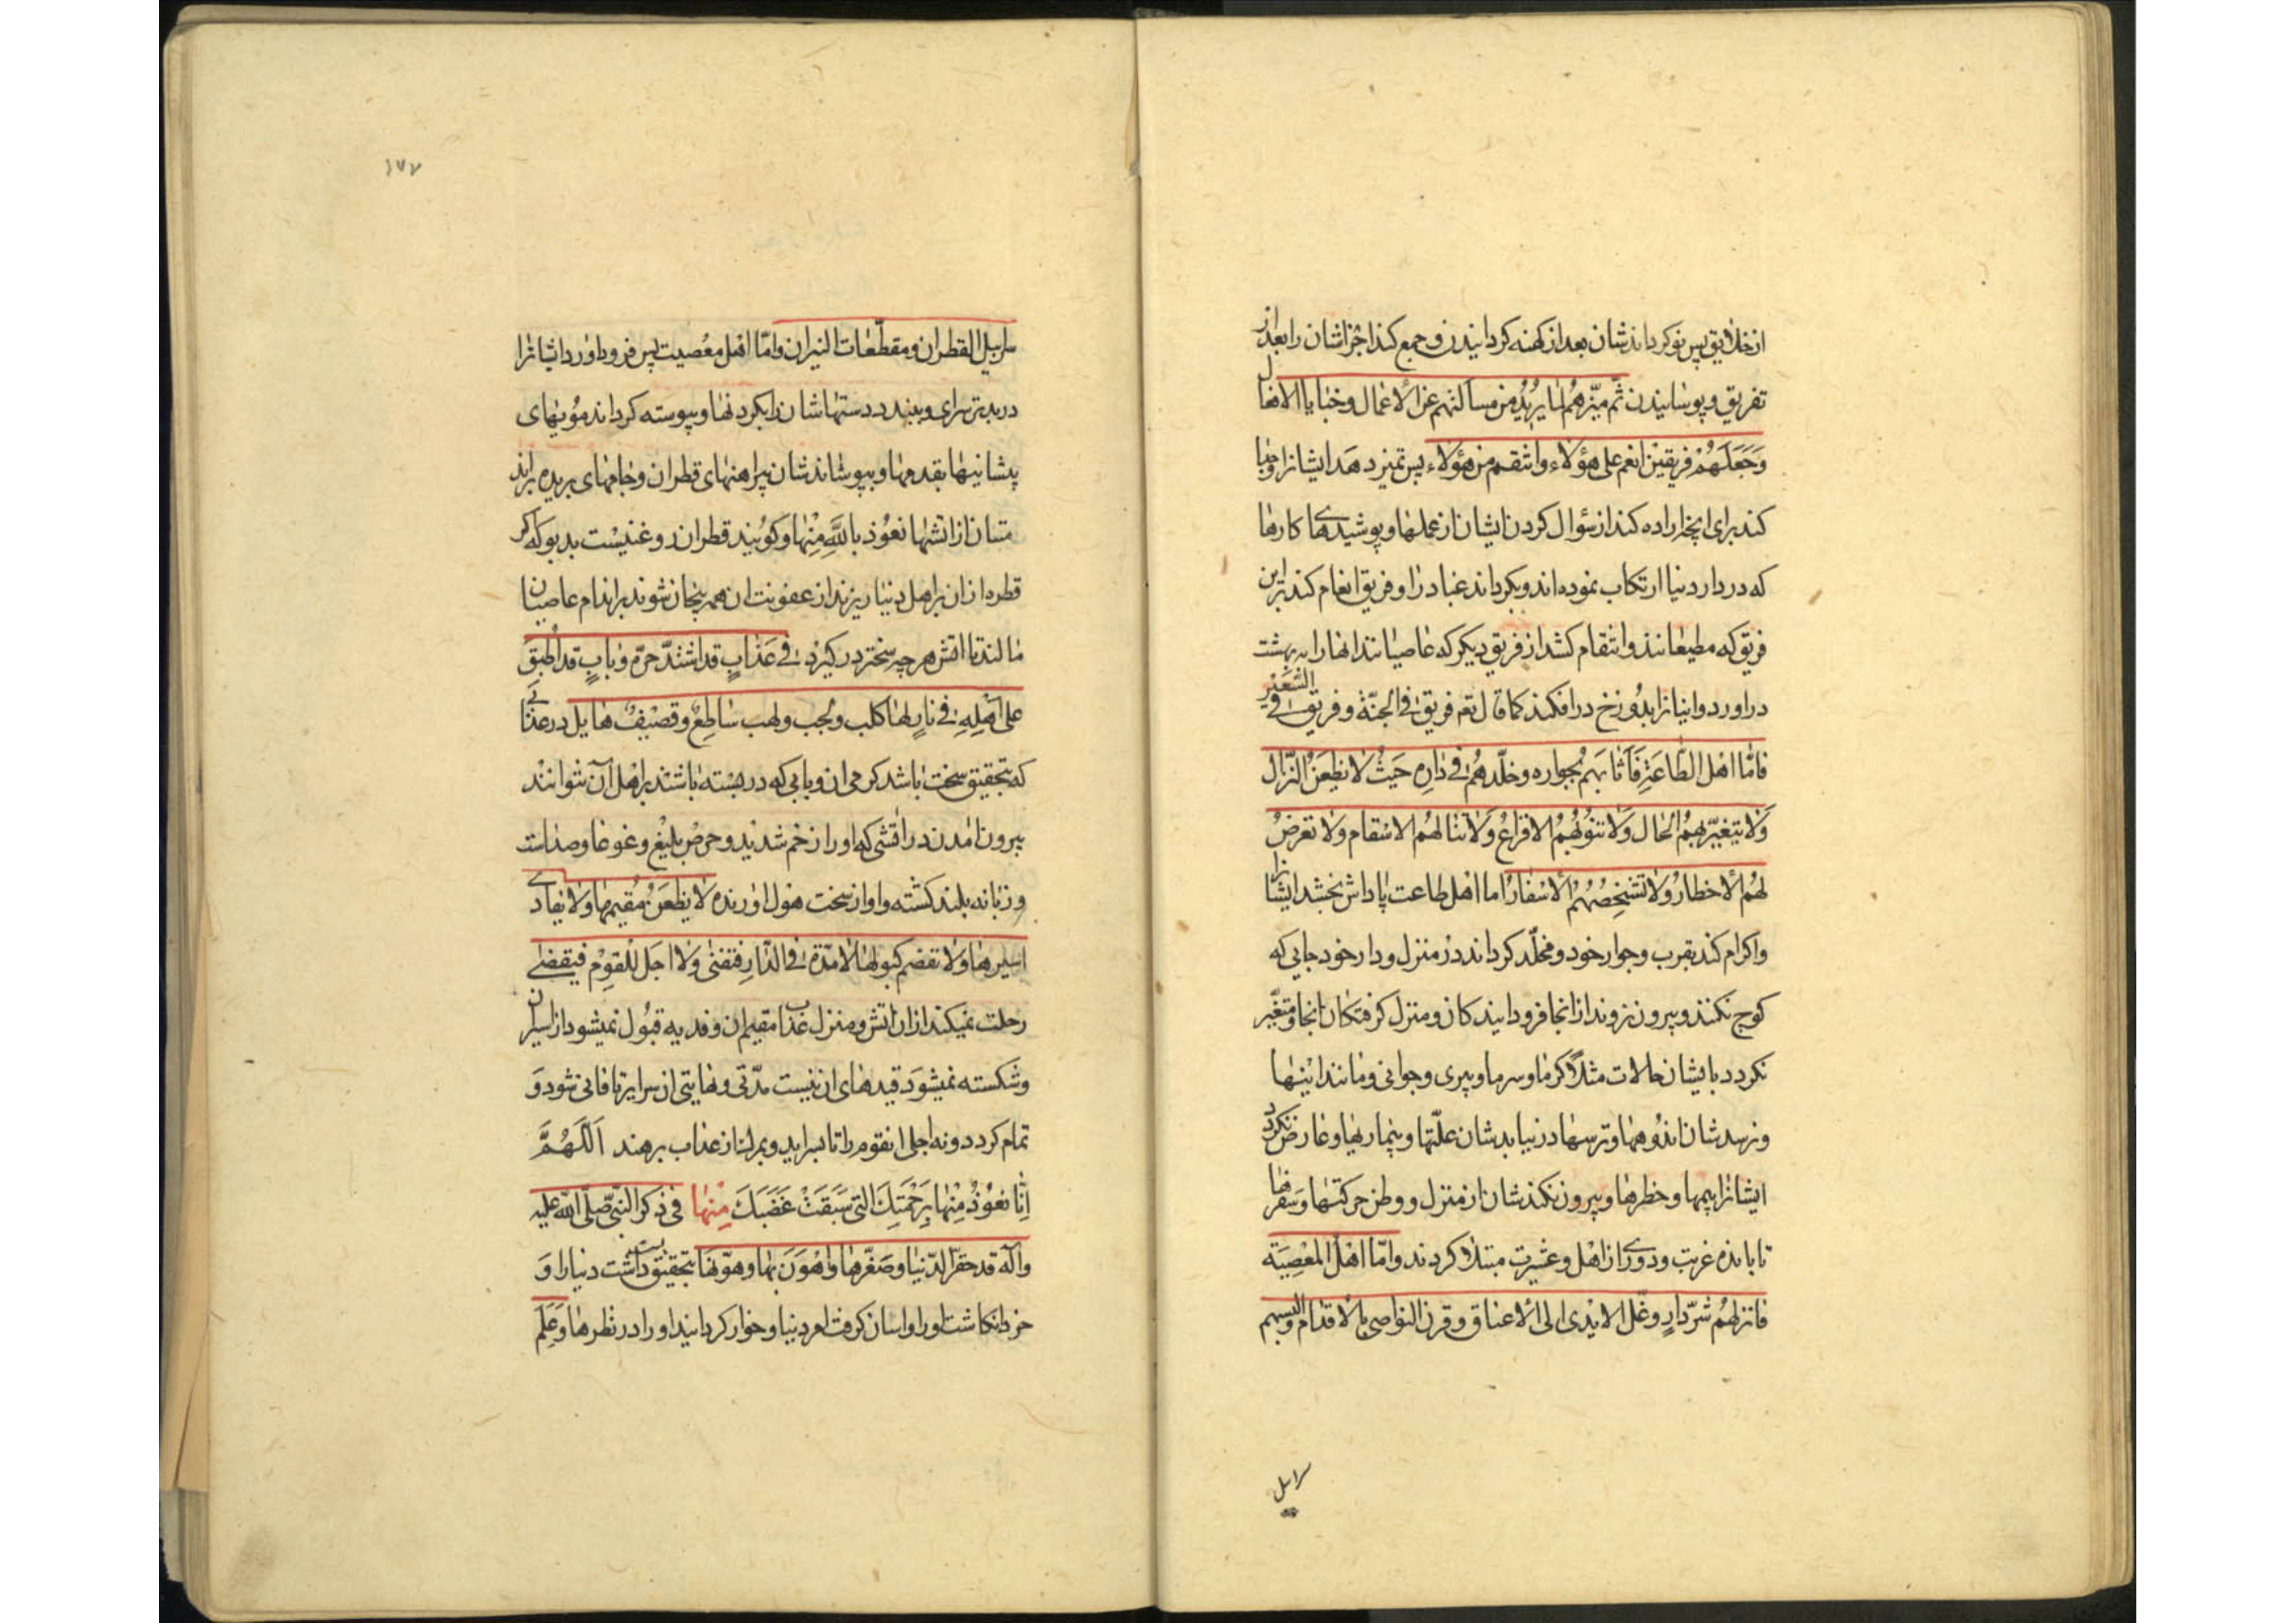 از خلایق پس نو کرداندشان بعد از کهنه کردانیدن و جمع کند اجزاشان را بعد از
تفریق و پوسانیدن ثم میزهم لما یرید من مسألتهم عن الاعمال و خبایا الافعال
وجعلهم فریقین انعم علی هؤلاء وانتقم من هؤلاء پس تمیز دهد ایشانرا و جدا
کند برای انچه اراده کند از سؤال کردن ایشان از عملها و پوشیدهای کارها
که در دار دنیا ارتکاب نموده‌اند و بکرداند عباد را دو فریق انعام کند بر این
فریق که مطیعانند و انتقام کشد از فریق دیکر که عاصیانند انها را به بهشت
دراورد و اینانرا بدوزخ درافکند کما قال تع فریق فی الجنّة و فریق فی السّعیر
فامّا اهل الطّاعة فاثابهم بجواره وخلّدهم فی داره حیث لا یظعن النزّال
ولا یتغیّر بهم الحال ولا تنوبهم الافزاع ولا تنالهم الاسقام ولا تعرض
لهم الاخطار ولا تشخصهم الاسفار اما اهل طاعت پاداش بخشد ایشانرا
واکرام کند بقرب و جوار خود و مخلّد کرداند در منزل و دار خود جایی که
کوچ نکنند و بیرون نروند از انجا فرود ایندکان و منزل کرفتکان انجا و متغیّر
نکردد بایشان حالات مثلا کرما و سرما و پیری و جوانی و مانند اینها
و نرسدشان اندوهها و ترسها در نیابدشان علّتها و بیماریها و عارض نکردد
ایشانرا بیمها و خطرها و بیرون نکندشان از منزل و وطن حرکتها و سفرها
تا باندوه غربت و دوری از اهل و عشیرت مبتلا کردند وامّا اهل المعصیة
فانزلهم شرّ دار وغلّ الایدی الی الاعناق وقرن النواصی بالاقدام والبسهم
سرابیل
۱۷۷
سرابیل القطران ومقطّعات النیران وامّا اهل معصیت پس فرود اورد ایشانرا
در بدترسرای و ببندد دستهاشان را بکردنها و پیوسته کرداند مویهای
پیشانیها بقدمها و بپوشاندشان پیراهنهای قطران و جامهای بریده برانـ
متشان از اتشها نعوذ بالله منها و کویند قطران روغنیست بدبو که اکر
قطره ازان بر اهل دنیا ریزند از عفونت ان همه بیجان شوند بر اندام عاصیان
مالند تا اتش هر چه سختر درکیرد فی عذاب قد اشتدّ حرّه وباب قد اطبق
علی اهله فی نار لها کلب ولجب ولهب ساطع وقصیف هایل در عذابی
که بتحقیق سخت باشد کرمی ان و بابی که در بسته باشند بر اهل ان نتوانند
بیرون امدن در اتشی که او را زخم شدید و حرص بلیغ و غوغا و صداست
و زبانه بلند کشته و اواز سخت هول اورنده لا یظعن مقیمها ولا یفادی
اسیرها ولا تفصم کبولها لا مدّة فی الدّار فتفنی ولا اجل للقوم فیقضی
رحلت نمیکند ازان اتش و منزل عذاب مقیمان و فدیه قبول نمیشود از اسیران
و شکسته نمیشود قیدهای ان نیست مدّتی و نهایتی ان سرایرا تا فانی شود و
تمام کردد و نه اجلی انقوم را تا بسراید و بمرک از عذاب برهند اللّهمّ
انّا نعوذ منها برحمتک التی سبقت غضبک منها فی ذکر النّبی صلّی الله علیه
وآله قد حقّر الدّنیا وصغّرها واهون بها وهوّنها بتحقیق پست داشت دنیا را و
خرد انکاشت او را و اسان کرفت امر دنیا و خوار کردانید او را در نظرها وعلم